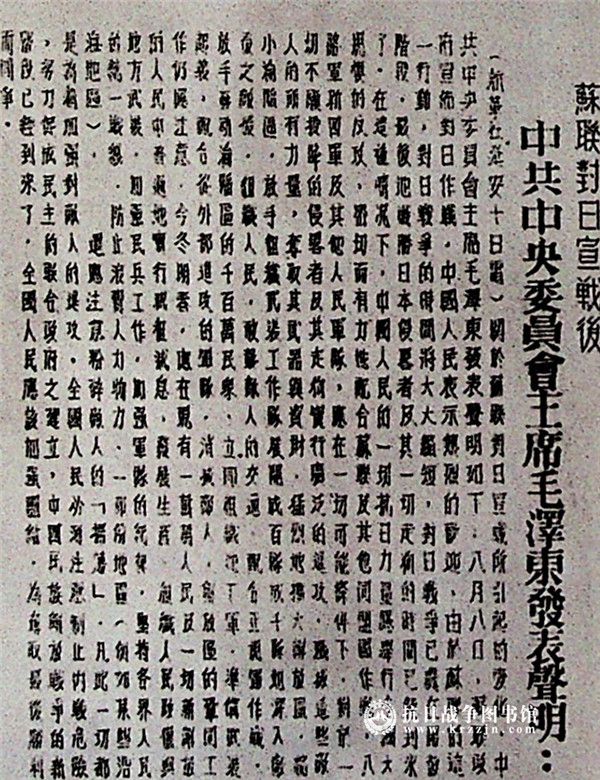 蘇聯對日宣戰後
中共中央委員會主席毛澤東發表聲明：
（新華社延安十日電）關於蘇聯對日宣戰所引起的 中
共中央委員會主席毛澤東發表聲明如下：八月八日，蘇
府宣佈對日作戰，中國人民表示熱烈的歡迎。由於蘇聯的這
一行動，對日戰爭的時間將大大縮短，對日戰爭已處在最後
階段，最後地戰勝日本侵略者及其一切走狗的時間已經到來
了。在這種情況下，中國人民的一切抗日力量應舉行全國規
模的反攻，密切而有力地配合蘇聯及其他同盟國作戰，八
路軍新四軍及其他人民軍隊，應在一切可能條件下，對於一
切不願投降的侵略者及其走狗實行廣泛的進攻，殲滅這些敵
人的所有力量，奪取其武器與資財，猛烈地擴大解放區，縮
小淪陷區，放手組織武裝工作隊成百隊成千隊深入敵
後之敵後，組織人民，破擊敵人的交通，配合正規軍作戰，
放手發動淪陷區的千百萬民衆，立即組織地下軍，準備武裝
起義，配合從外部進攻的軍隊，消滅敵人，解放區的鞏固工
作仍應注意。今冬明春，應在現有一萬萬人民及一切新解放區
的人民中普遍地實行減租減息，發展生產，組織人民政權與
地方武裝，加強民兵工作，加強軍隊的紀律，堅持各界人民
的統一戰線，防止浪費人力物力。一部份地區（例如某些沿
海地區），還應注意粉碎敵人的「掃蕩」，凡此一切都
是為着加強對敵人的進攻，全國人民必須注意制止內戰危險
，努力促成民主的聯合政府之建立，中國民族解放戰爭的新
階段已經到來了，全國人民應該加強團結，為奪取最後勝利
而鬥爭。
抗日战争图书馆
www.krzzjn.com